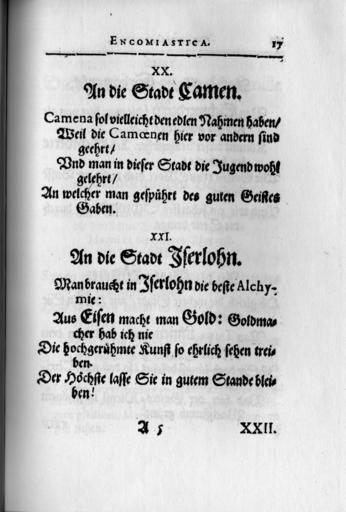 ENCOMIASTICA. 17
XX.
An die Stadt Camen.
Camena sol vielleicht den edlen Nahmen haben/
Weil die Camœnen hier vor andern sind
geehrt/
Vnd man in dieser Stadt die Jugend wohl
gelehrt/
An welcher man gespührt des guten Geistes
Gaben.
XXI.
An die Stadt Iserlohn.
Man braucht in Iserlohn die beste Alchy-
mie:
Aus Eisen macht man Gold: Goldma-
cher hab ich nie
Die hochgerühmte Kunst so ehrlich sehen trei-
ben.
Der Höchste lasse Sie in gutem Stande blei-
ben!
A 5 XXII.